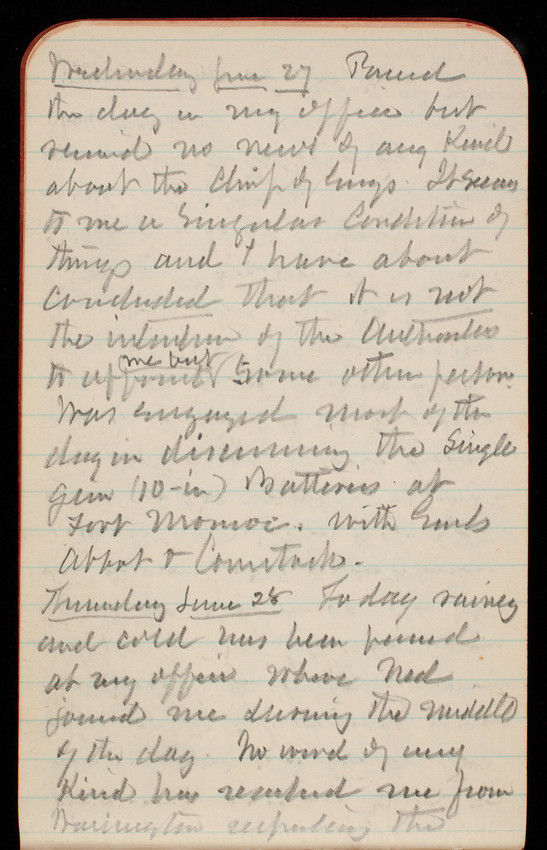 Wednesday June 27 Passed
the day in my office but
received no news of any Kind
about the Chief of Engs. It seems
to me a Singular Condition of
things and I have about
Concluded that it is not
the intention of the Authorities
to appoint me but Some other person.
Was engaged most of the
day in discussing the Single
Gun (10-in) Batteries at
Fort Monroe. with Genls
Abbot & Comstock.
Thursday June 28 Today rainey
and cold has been passed
at my office where Ned
joined me during the middle
of the day. No word of any
Kind has reached me from
Washington respecting the